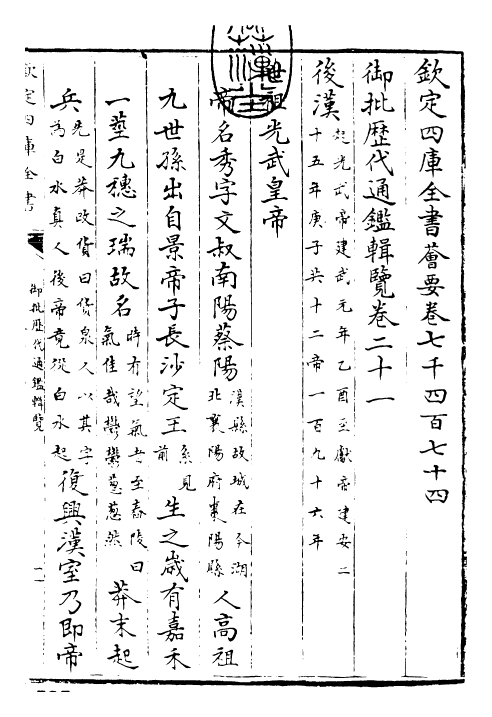 欽定四庫全書薈要卷七千四百七十四
御批歷代通鑑輯覽卷二十一
後漢
起光武帝建武元年乙酉至獻帝建安二
十五年庚子共十二帝一百九十六年
世祖光武皇帝
帝名秀字文叔南陽蔡陽
漢縣故城在今湖
北襄陽府棗陽縣
人高祖
九世孫出自景帝子長沙定王
系見
前
生之歲有嘉禾
一莖九穗之瑞故名
時有望氣者至舂陵曰
氣佳哉鬱鬱葱葱然
莽末起
兵
先是莽改貨曰貨泉人以其字
為白水真人後帝竟從白水起
復興漢室乃即帝
欽定四庫全書
御批歷代通鑑輯覽
一